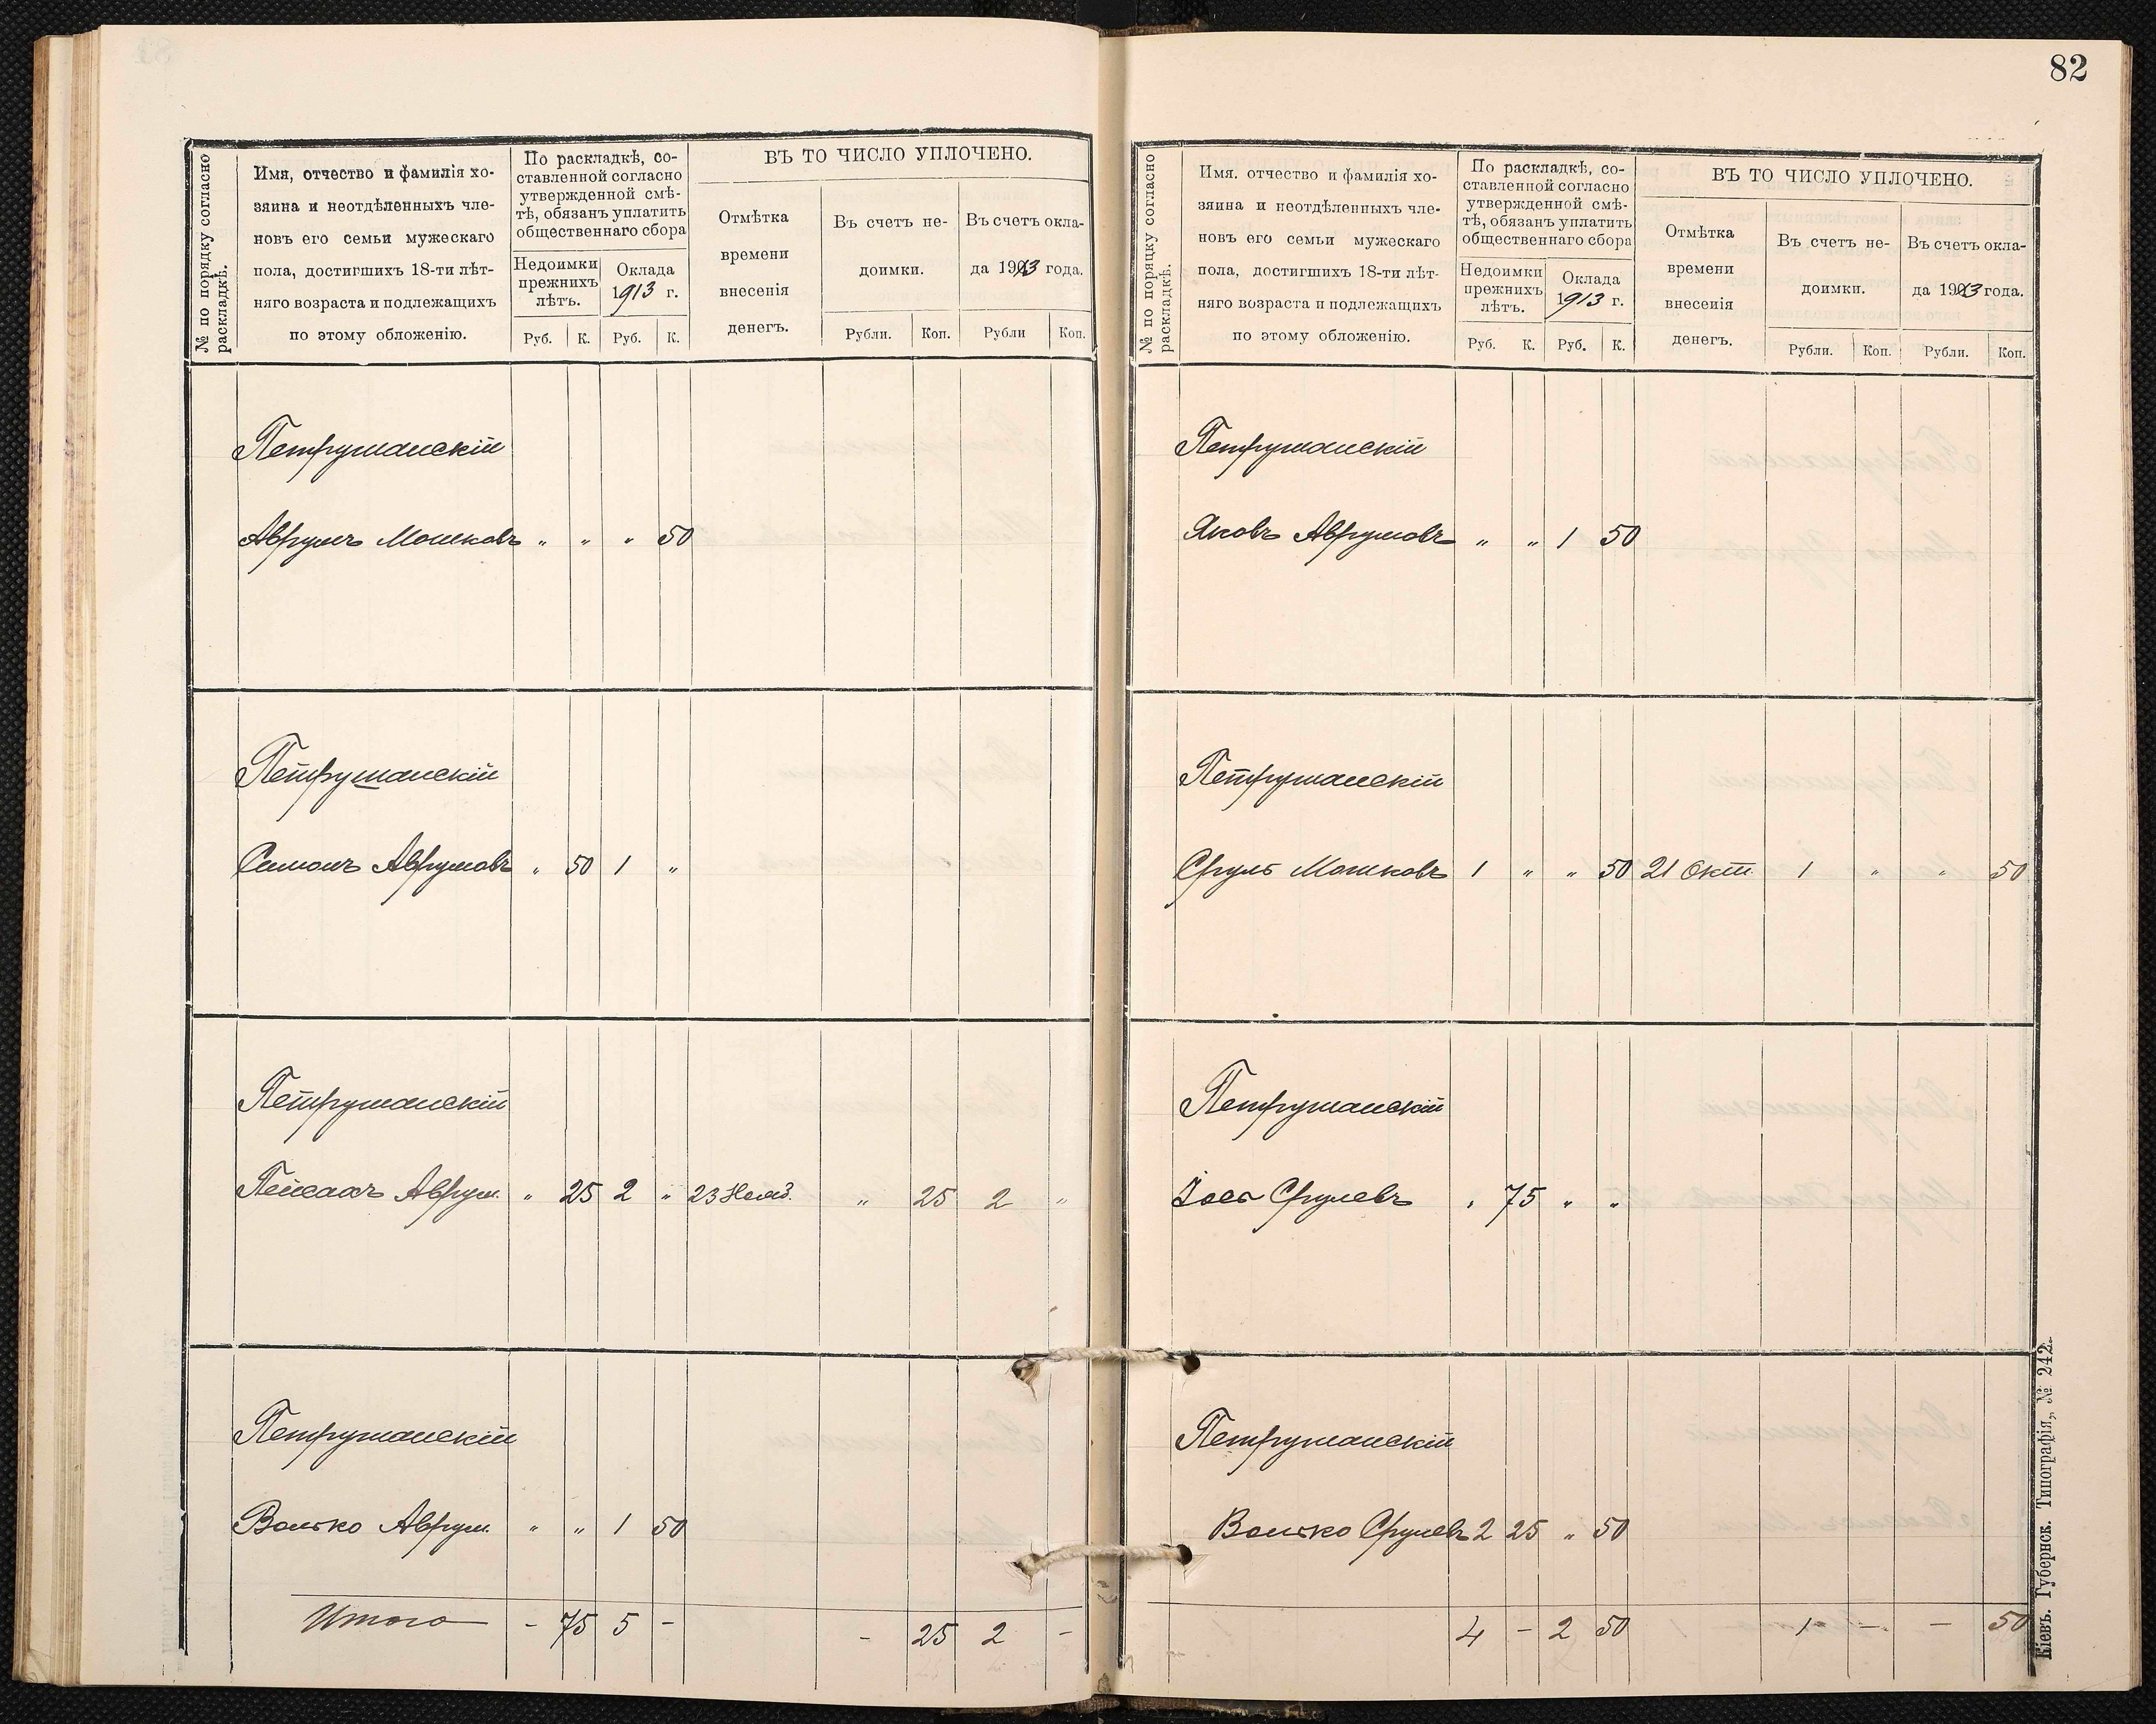 82
№ по порядку согласно раскладкѣ.
Имя, отчество и фамилія хо-
зяина и неотдѣленныхъ чле-
новъ его семьи мужескаго
пола, достигшихъ 18-ти лѣт-
няго возраста и подлежащихъ
по этому обложенію.
По раскладкѣ, со-
ставленной согласно
утвержденной смѣ-
тѣ, обязанъ уплатить
общественнаго сбора
Недоимки
прежнихъ
лѣтъ.
Оклада
1913 г.
Руб. К. Руб. К.
ВЪ ТО ЧИСЛО УПЛОЧЕНО.
Отмѣтка
времени
внесенія
денегъ.
Въ счетъ не-
доимки.
Въ счетъ окла-
да 1913 года.
Рубли. Коп. Рубли Коп.
Петрушанскій
Аврумъ Мошковъ " " " 50
Петрушанскій
Симонъ Аврумовъ " 50 1 "
Петрушанскій
Пейсахъ Аврум. " 25 2 " 23 Нояб. " 25 2 "
Петрушанскій
Волько Аврум. " " 1 50
Итого - 75 5 - - 25 2 -
№ по порядку согласно раскладкѣ.
Имя. отчество и фамилія хо-
зяина и неотдѣленныхъ чле-
новъ его семьи мужескаго
пола, достигшихъ 18-ти лѣт-
няго возраста и подлежащихъ
по этому обложенію.
По раскладкѣ, со-
ставленной согласно
утвержденной смѣ-
тѣ, обязанъ уплатить
общественнаго сбора
Недоимки
прежнихъ
лѣтъ.
Оклада
1913 г.
Руб. К. Руб. К.
ВЪ ТО ЧИСЛО УПЛОЧЕНО.
Отмѣтка
времени
внесенія
денегъ.
Въ счетъ не-
доимки.
Въ счетъ окла-
да 1913 года.
Рубли. Коп. Рубли. Коп.
Петрушанскій
Яковъ Аврумовъ " " 1 50
Петрушанскій
Сруль Мошковъ 1 " " 50 21 Окт. 1 " " 50
Петрушанскій
Іосъ Срулевъ " 75 " "
Петрушанскій
Волько Срулевъ 2 25 " 50
4 - 2 50 1 - - 50
Кіевъ. Губернск. Типографія„ № 242.